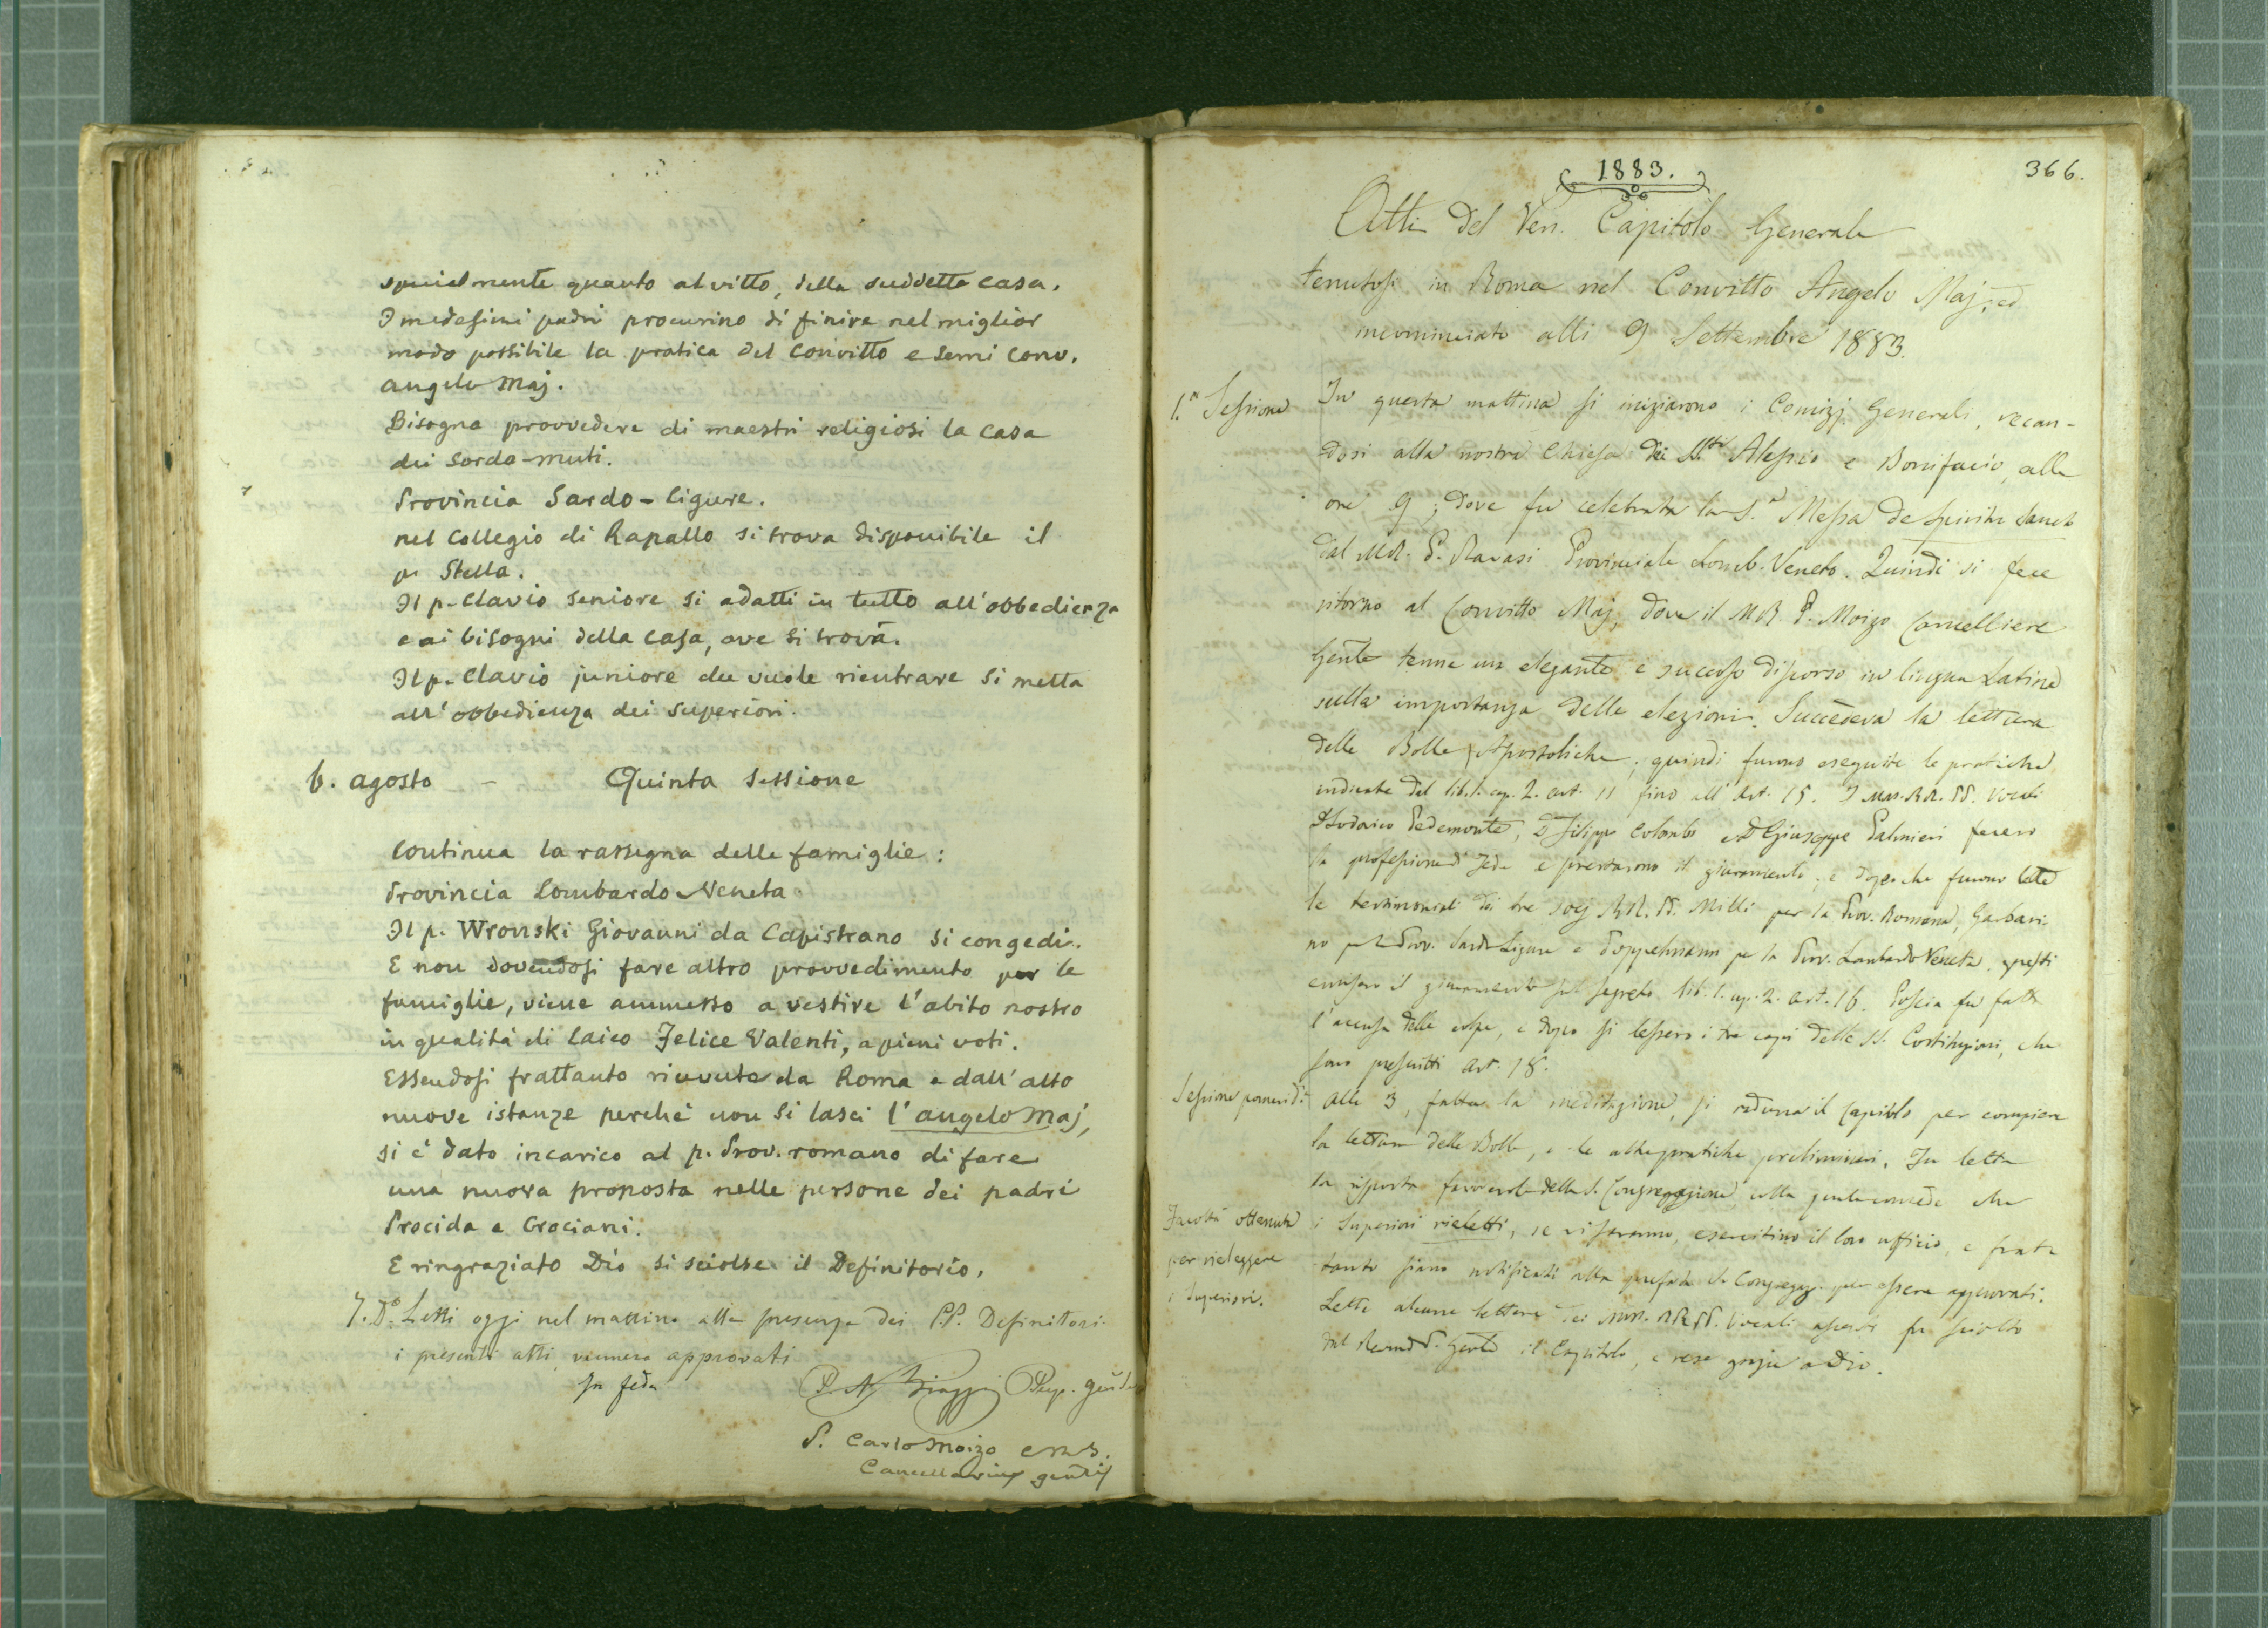 specialmente quanto al vitto, della suddetta casa.
I medesimi padri procurino di finire nel miglior
modo possibile la pratica del convitto e semi conv.
angelo Maj.
Bisogna provvedere di maestri religiosi la casa
dei sordo-muti.
Provincia Sardo-ligure.
nel collegio di Rapallo si trova disponibile il
p. Stella.
Il p. Clavio seniore si adatti in tutto all'obbedienza
e ai bisogni della casa, ove si trova.
Il p. Clavio juniore che vuole rientrare si metta
all'obbedienza dei superiori.
6. agosto - Quinta sessione
Continua la rassegna delle famiglie:
Provincia Lombardo Veneta
Il p. Wronski Giovanni da Capistrano si congedi.
E non dovendosi fare altro provvedimento per le
famiglie, viene ammesso a vestire l'abito nostro
in qualità di laico Felice Valenti, a pieni voti.
Essendosi frattanto ricevute da Roma e dall'alto
nuove istanze perchè non si lasci l'angelo Maj,
si è dato incarico al p. Prov. romano di fare
una nuova proposta nelle persone dei padri
Procida e Grociani.
E ringraziato Dio si sciolse il Definitorio.
7. D.o Letti oggi nel mattino alla presenza dei P.P. Definitori
i presenti atti, vennero approvati
In fede
P. N. Biaggi Prep. gen
P. Carlo Moizo crs.
Cancellarius genlis
1883.
366.
Atti del Ven. Capitolo Generale
tenutosi in Roma nel Convitto Angelo Maj, ed
incominciato alli 9 Settembre 1883.
1.a Sessione
In questa mattina si iniziarono i Comizj Generali, recan-
dosi alla nostra Chiesa dei SS.ti Alessio e Bonifacio, alle
ore 9; dove fu celebrata la S.a Messa de Spiritu Sancto
dal MR. P. Ravasi Provinciale Lomb. Veneto. Quindi si fece
ritorno al Convitto Maj, dove il MR P. Moizo Cancelliere
Genle tenne un elegante e succoso discorso in lingua Latina
sulla importanza delle elezioni. Succedeva la lettura
delle Bolle Apostoliche; quindi furono eseguite le pratiche
indicate dal lib. 1. cap. 2. art. 11 fino all'art. 15. I MM. RR. PP. Vocali
D. Lodovico Pedemonte, D. Filippo Colombo e D. Giuseppe Palmieri fecero
la professione di Fede e prestarono il giuramento; e dopo che furono lette
le testimoniali dei tre socj RR. PP. Milli per la Prov. Romana, Garbari-
no per la Prov. Sardo Ligure e Doppelmann per la Prov. Lombardo Veneta, questi
emisero il giuramento sul segreto lib. 1. cap. 2. art. 16. Poscia fu fatta
l'accusa delle colpe, e dopo si lessero i tre capi delle SS. Costituzioni, che
sono prescritti art. 18.
Sessione pomerid.a
Alle 3, fatta la meditazione, si raduna il Capitolo per compiere
la lettura delle Bolle, e le altre pratiche preliminari. Fu letta
la risposta favorevole della S. Congregazione colla quale concede che
Facoltà ottenuta
per rieleggere
i Superiori.
i Superiori rieletti, se vi saranno, esercitino il loro ufficio, e frat-
tanto siano notificati alla prefata S. Congregaz. per essere approvati.
Lette alcune lettere dei MM. RR PP. Vocali assenti fu sciolto
dal Revmo P. Genle il Capitolo, e rese grazie a Dio.